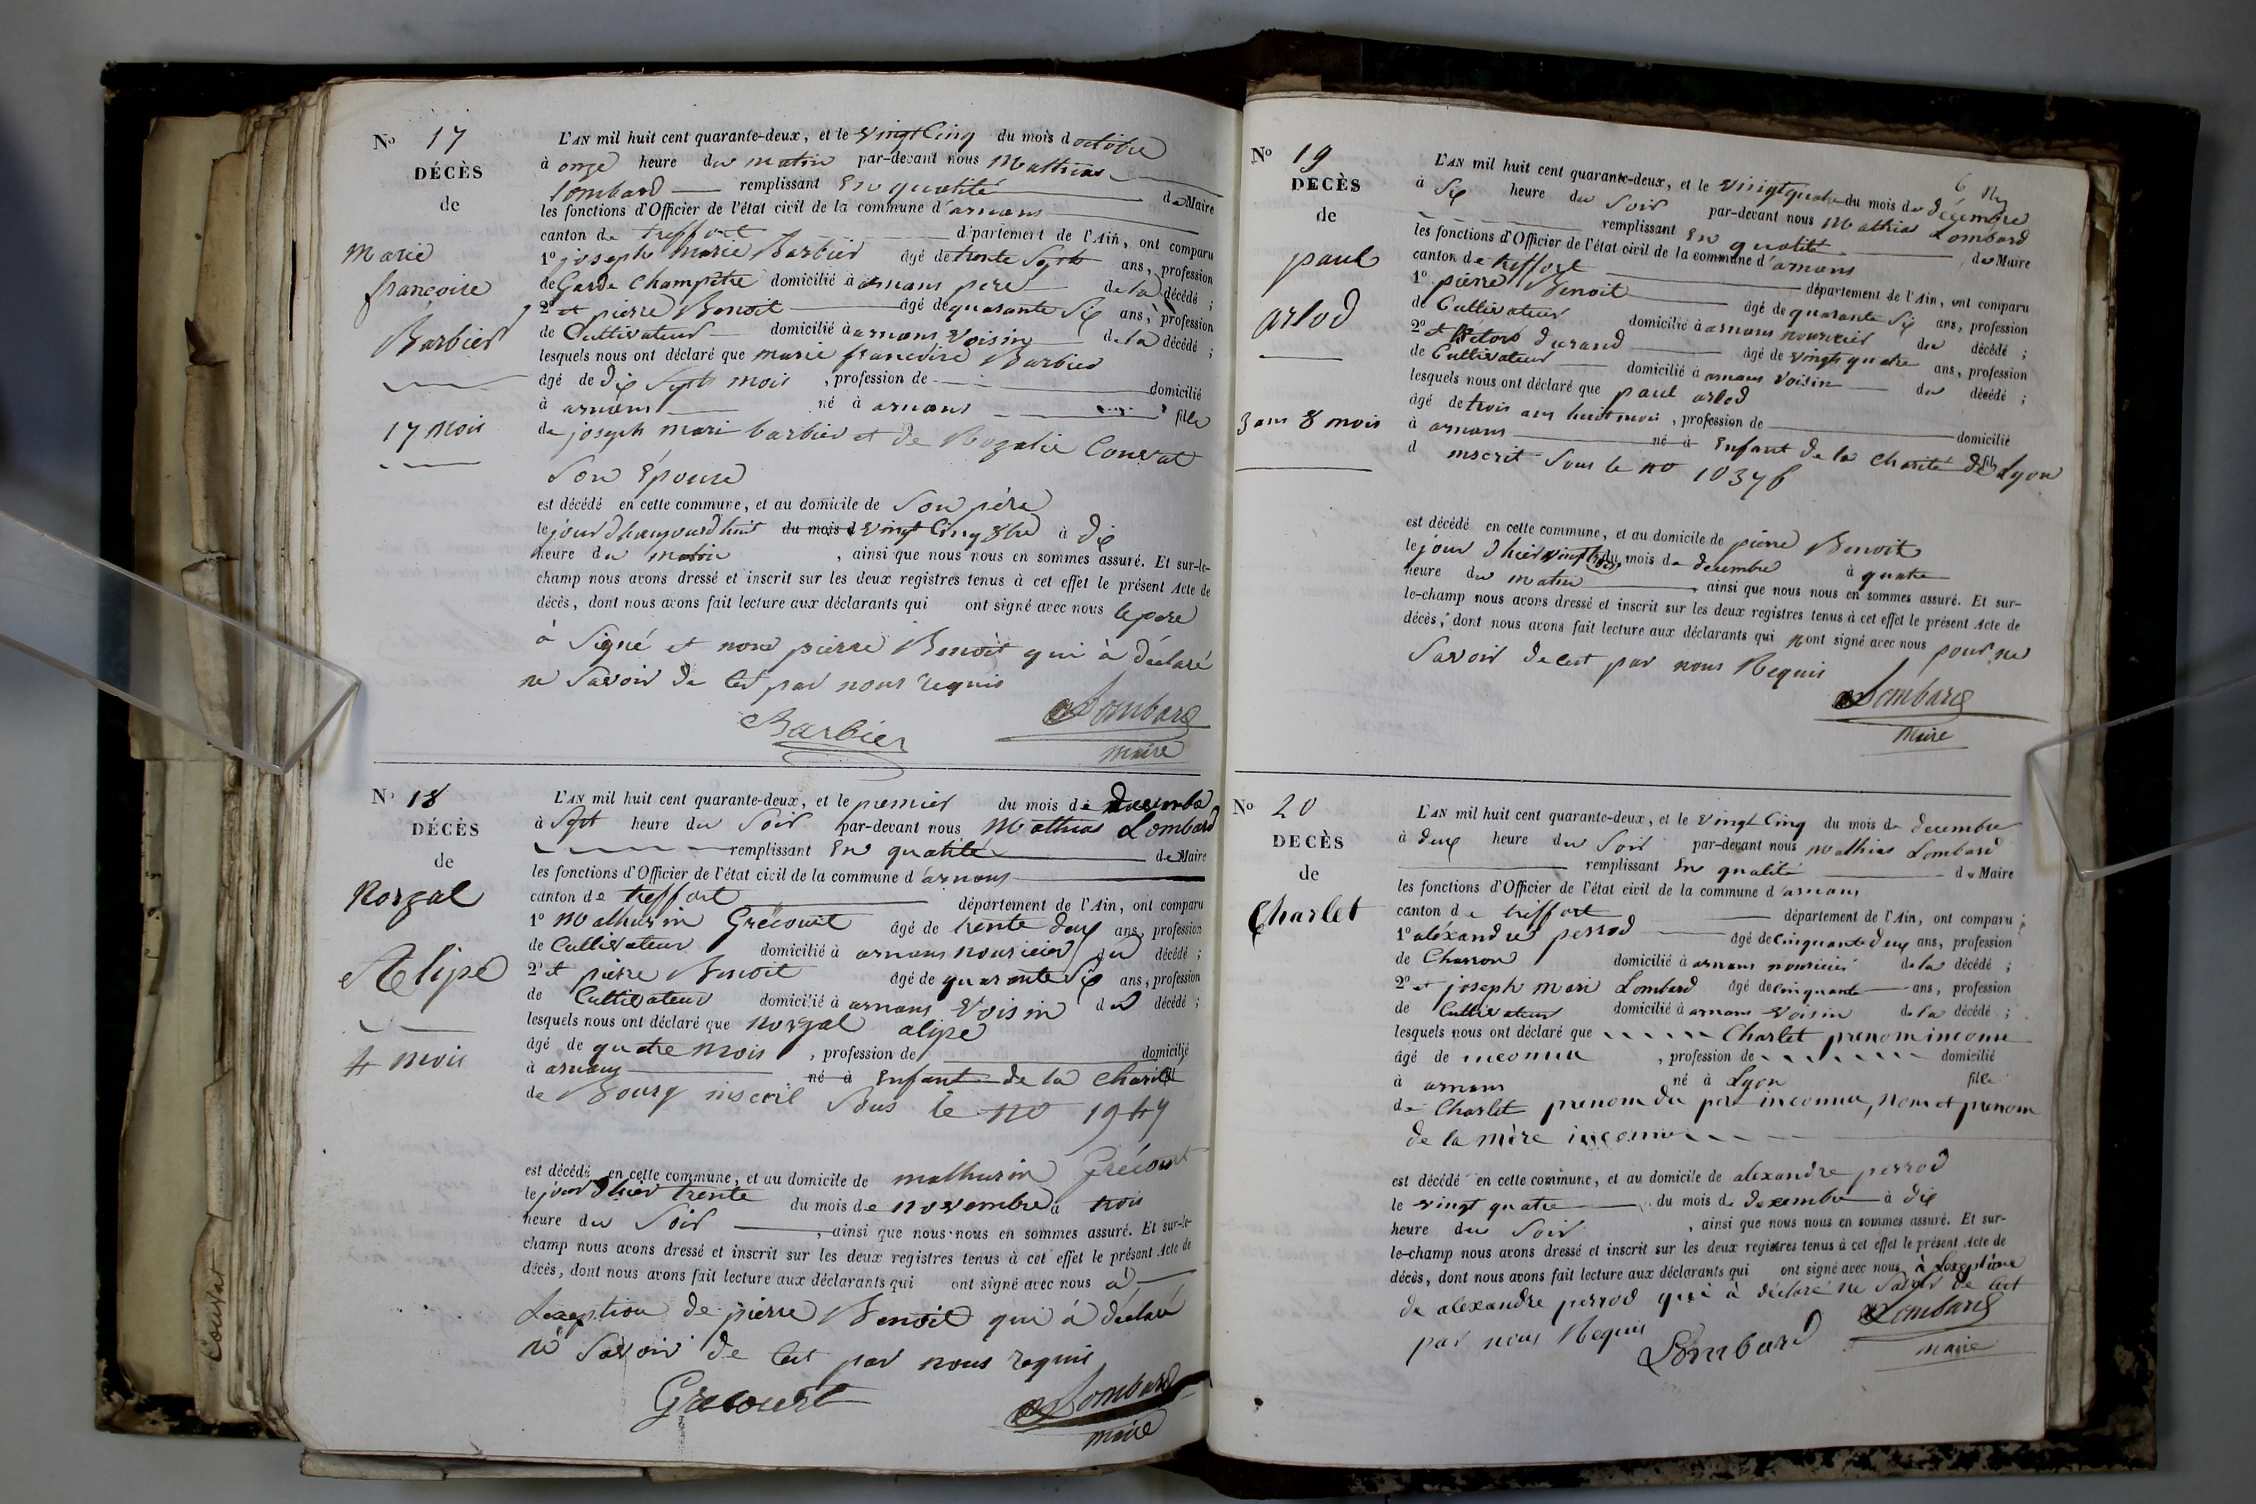 No 17
DÉCÈS
de
Marie
françoise
Barbier
17 mois
L'AN mil huit cent quarante-deux, et le vingt Cinq du mois d octobre
à onze heure du matin par-devant nous Mathias
Lombard remplissant En qualité de Maire
les fonctions d'Officier de l'état civil de la commune d'arnans
canton de treffort département de l'Ain, ont comparu
1º joseph marie Barbier âgé de trente Sept ans, profession
de Garde Champêtre domicilié à arnans pere de la décédé ;
2º et pierre Benoit âgé de quarante Six ans, profession
de Cultivateur domicilié à arnans Voisin de la décédé ;
lesquels nous ont déclaré que marie francoise Barbier
âgé de dix Sept mois , profession de domicilié
à arnans né à arnans fille
de joseph mari barbier et de Rozalie Convat
Son Épouse
est décédé en cette commune, et au domicile de Son père
le jour dhaujourdhuit du mois d vingt Cinq 8bre à dix
heure du matin , ainsi que nous nous en sommes assuré. Et sur-le-
champ nous avons dressé et inscrit sur les deux registres tenus à cet effet le présent Acte de
décès, dont nous avons fait lecture aux déclarants qui ont signé avec nous le pere
à Signé et non pierre Benoit qui à déclaré
ne Savoir de Cet par nous requis
Barbier
Lombard
maire
No 18
DÉCÈS
de
Norzal
Alipe
4 mois
L'AN mil huit cent quarante-deux, et le premier du mois de decembre
à Sept heure du Soir par-devant nous Mathias Lombard
remplissant En qualité de Maire
les fonctions d'Officier de l'état civil de la commune d'arnans
canton de treffort département de l'Ain, ont comparu
1º Mathurin Grécourt âgé de trente deux ans, profession
de Cultivateur domicilié à arnans nouricier du décédé ;
2º et pierre Benoit âgé de quarante Six ans, profession
de Cultivateur domicilié à arnans Voisin du décédé ;
lesquels nous ont déclaré que norzal alipe
âgé de quatre mois , profession de domicilié
à arnans né à Enfant de la charité
de Bourg inscrit Sous le no 1947
est décédé en cette commune, et au domicile de mathurin Grécourt
le jour dhier trente du mois de novembre à nois
heure du Soir , ainsi que nous nous en sommes assuré. Et sur-le-
champ nous avons dressé et inscrit sur les deux registres tenus à cet effet le présent Acte de
décès, dont nous avons fait lecture aux déclarants qui ont signé avec nous à
Lexeption de pierre Benoit qui à déclaré
ne Savoir de Cet par nous requis
Grecourt
Lombard
maire
Couvat
No 19
DÉCÈS
de
paul
arlod
3 ans 8 mois
L'AN mil huit cent quarante-deux, et le vingt quatre du mois de décembre
à Six heure du Soir par-devant nous Mathias Lombard
remplissant En qualité de Maire
les fonctions d'Officier de l'état civil de la commune d'arnans
canton de treffort département de l'Ain, ont comparu
1º pierre Benoit âgé de quarante Six ans, profession
de Cultivateur domicilié à arnans nouricier du décédé ;
2º et durand âgé de vingt quatre ans, profession
de Cultivateur domicilié à arnans Voisin du décédé ;
lesquels nous ont déclaré que paul arlod
âgé de trois ans huit mois , profession de domicilié
à arnans né à Enfant de la charité de Lyon fils
d inscrit Sous le no 10376
est décédé en cette commune, et au domicile de pierre Benoit
le jour dhier vingt trois du mois de decembre à quatre
heure du matin , ainsi que nous nous en sommes assuré. Et sur-
le-champ nous avons dressé et inscrit sur les deux registres tenus à cet effet le présent Acte de
décès, dont nous avons fait lecture aux déclarants qui n ont signé avec nous pour ne
Savoir de cet par nous Requis
Lombard
Maire
No 20
DÉCÈS
de
Charlet
L'AN mil huit cent quarante-deux, et le vingt Cinq du mois de decembre
à deux heure du Soir par-devant nous mathias Lombard
remplissant En qualité de Maire
les fonctions d'Officier de l'état civil de la commune d'arnans
canton de treffort département de l'Ain, ont comparu ;
1º aléxandre perrod âgé de cinquante deux ans, profession
de Charron domicilié à arnans nouricier de la décédé ;
2º et joseph mari Lombard âgé de cinquante ans, profession
de Cultivateur domicilié à arnans Voisin de la décédé ;
lesquels nous ont déclaré que Charlet prenom inconu
âgé de inconnu , profession de domicilié
à arnans né à Lyon fille
de Charlet prenom du pere inconnu, nom et prenom
de la mère inconu
est décédé en cette commune, et au domicile de alexandre perrod
le vingt quatre du mois de decembre à dix
heure du Soir , ainsi que nous nous en sommes assuré. Et sur-
le-champ nous avons dressé et inscrit sur les deux registres tenus à cet effet le présent Acte de
décès, dont nous avons fait lecture aux déclarants qui ont signé avec nous à Lexeptione
de alexandre perrod qui à déclaré ne Savoir de Cet
par nous Requis
Lombard
Lombard
maire